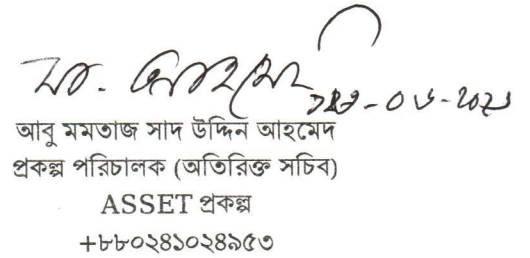 আবু মমতাজ সাদ উদ্দিন আহমেদ
প্রকল্প পরিচালক (অতিরিক্ত সচিব)
ASSET প্রকল্প
+৮৮০২৪১০২৪৯৫৩